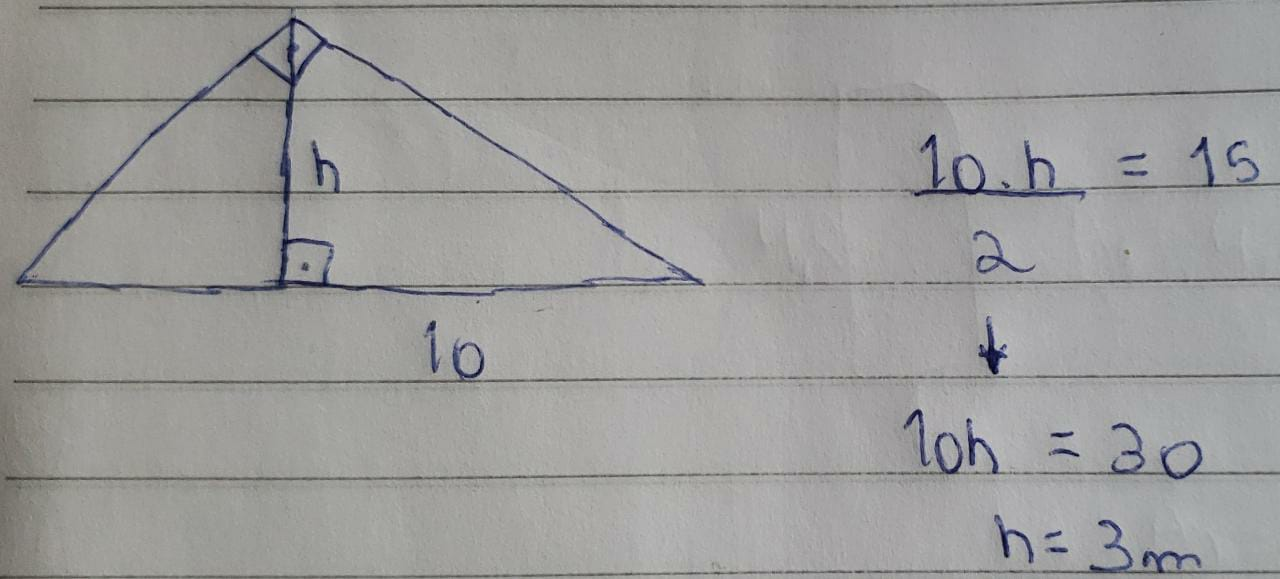 h
10
10.h = 15
2
↓
10h = 30
h = 3m